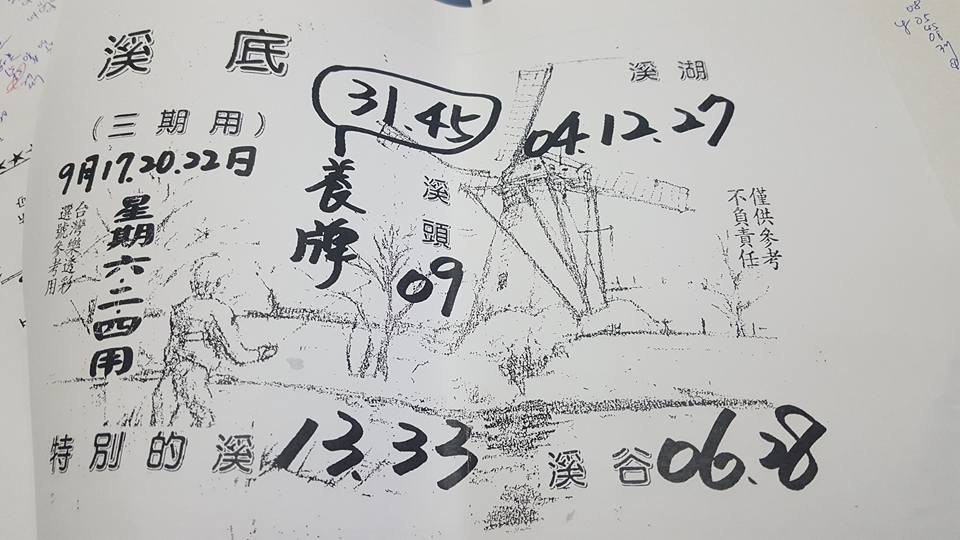 溪底
(三期用)
9月17.20.22日
星期六.二.四用
台灣樂透秒
選號參考用
31.45
養牌
溪湖
04.12.27
溪頭
09
僅供參考
不負責任
特別的溪 13.33
溪谷 06.28
08
05
45